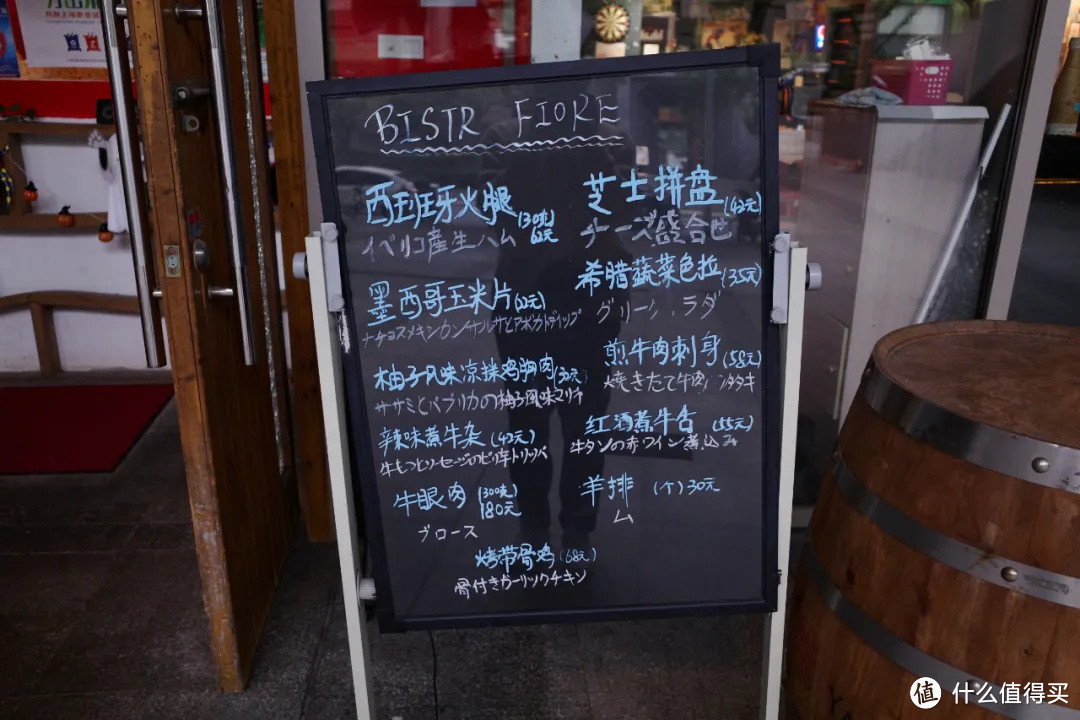 BISTR FIORE
西班牙火腿 (30克) 62元
イベリコ産生ハム
墨西哥玉米片
ナチョスメキシカン
柚子风味凉拌鸡胸肉
ササミとパプリカの柚子風味マリネ
辣味煮牛杂 (42元)
牛もつとソーセージのピリ辛トリッパ
牛眼肉 (300克) 180元
ブロース
烤带骨鸡 (68元)
骨付きガーリックチキン
芝士拼盘 (42元)
チーズ盛合せ
希腊蔬菜色拉 (35元)
グリーン ラダ
煎牛肉刺身 (58元)
焼きたて牛肉 タタキ
红酒煮牛舌 (55元)
牛タンの赤ワイン煮込み
羊排 (个) 30元
ム
值 什么值得买